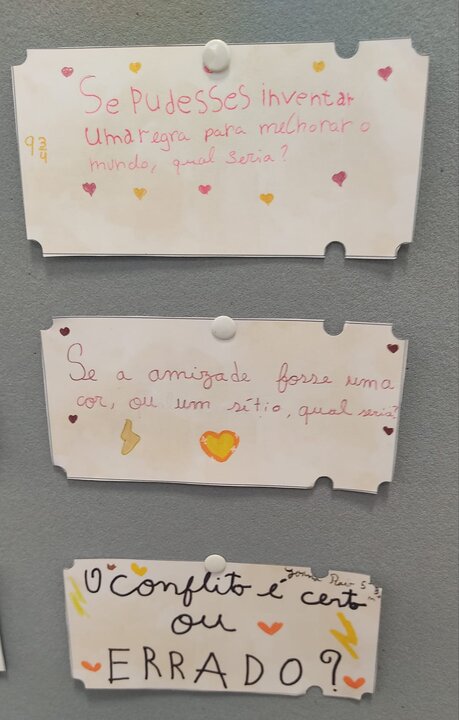 Se pudesses inventar
9 3/4
uma regra para melhorar o
mundo, qual seria?
Se a amizade fosse uma
cor, ou um sítio, qual seria?
O conflito é certo
ou
ERRADO?